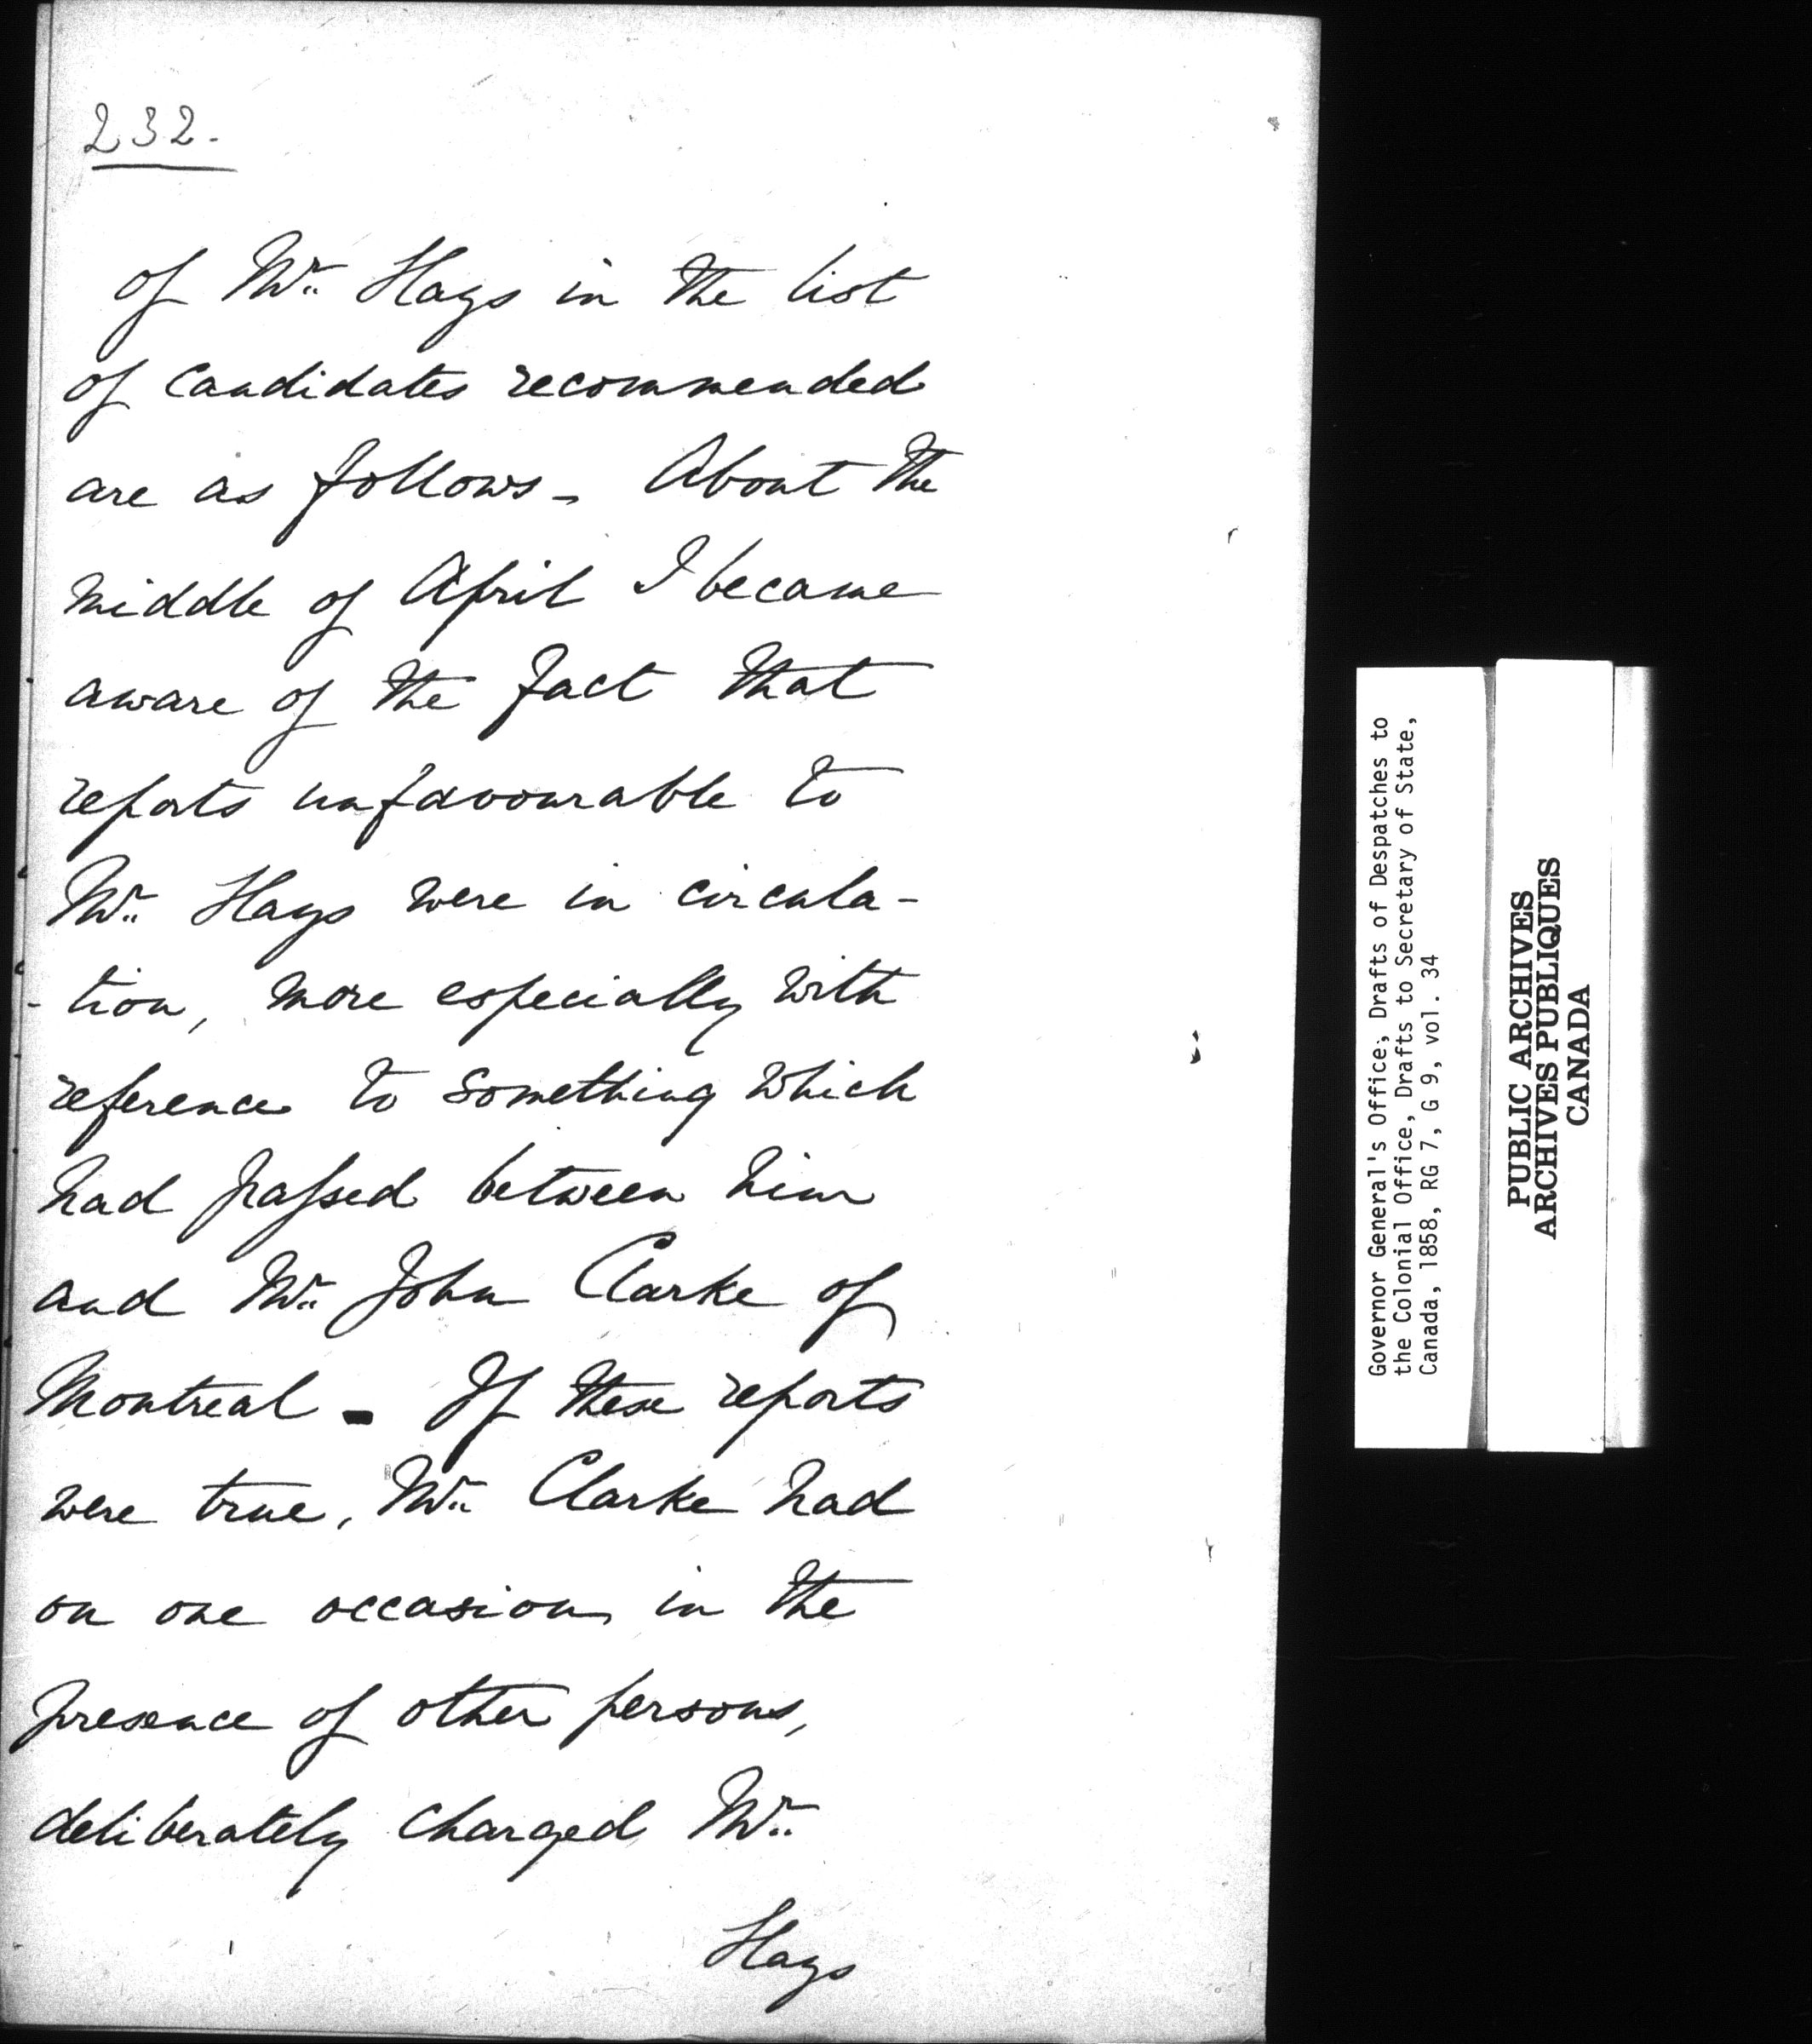 232.
of Mr. Hays in the list
of candidates recommended
are as follows - About the
middle of April I became
aware of the fact that
reports unfavourable to
Mr. Hays were in circula-
-tion, more especially with
reference to something which
had passed between him
and Mr. John Clarke of
Montreal - If these reports
were true, Mr. Clarke had
on one occasion, in the
presence of other persons,
deliberately charged Mr.
Hays
Governor General's Office; Drafts of Despatches to
the Colonial Office, Drafts to Secretary of State,
Canada, 1858, RG 7, G 9, vol. 34
PUBLIC ARCHIVES
ARCHIVES PUBLIQUES
CANADA